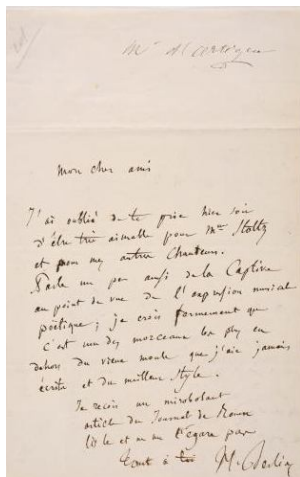 Mr d'Ortigue
Mon cher ami
J'ai oublié de te prier hier soir
d'être très aimable pour Mme Stoltz
et pour mes autres Chanteurs.
Parle un peu aussi de la Captive
au point de vue de l'expression musicale
poëtique; je crois fermement que
c'est un des morceaux les plus en
dehors du vieux moule que j'aie jamais
écrits et du meilleur style.
Je reçois un mirobolant
article du Journal de Rouen
lis le et ne me l'égare pas
tout à toi H. Berlioz